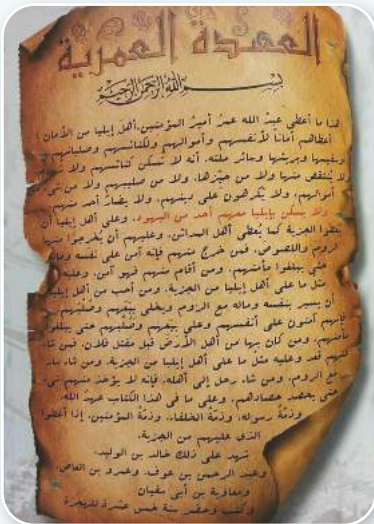 العهدة العمرية
بسم الله الرحمن الرحيم
هذا ما أعطى عبد الله عمر أمير المؤمنين، أهل إيليا من الأمان !
أعطاهم أمانا لأنفسهم وأموالهم ولكنائسهم وصلبانهم
وسقيمها وبريئها وسائر ملته، أنه لا تسكن كنائسهم ولا
ولا ينتقص منها ولا من حيزها، ولا من صليبهم ولا من شيء
أموالهم، ولا يكرهون على دينهم، ولا يضار أحد منهم
ولا يسكن بإيليا معهم أحد من اليهود، وعلى أهل إيليا أن
يعطوا الجزية كما يعطي أهل المدائن، وعليهم أن يخرجوا منها
الروم واللصوص، فمن خرج منهم فإنه آمن على نفسه وماله
حتى يبلغوا مأمنهم، ومن أقام منهم فهو آمن، وعليه
مثل ما على أهل إيليا من الجزية، ومن أحب من أهل إيليا
أن يسير بنفسه وماله مع الروم ويخلي بيعهم وصلبهم
فإنهم آمنون على أنفسهم وعلى بيعهم وصلبهم حتى يبلغوا
مأمنهم، ومن كان بها من أهل الأرض قبل مقتل فلان، فمن شاء
منهم قعد وعليه مثل ما على أهل إيليا من الجزية، ومن شاء سار
مع الروم، ومن شاء رجل إلى أهله، فإنه لا يؤخذ منهم شيء
حتى يحصد حصادهم، وعلى ما في هذا الكتاب عهد الله،
وذمة رسوله، وذمة الخلفاء، وذمة المؤمنين، إذا أعطوا
الذي عليهم من الجزية.
شهد على ذلك خالد بن الوليد،
وعبد الرحمن بن عوف، وعمرو بن العاص،
ومعاوية بن أبي سفيان
وكتب وحضر سنة خمس عشرة للهجرة